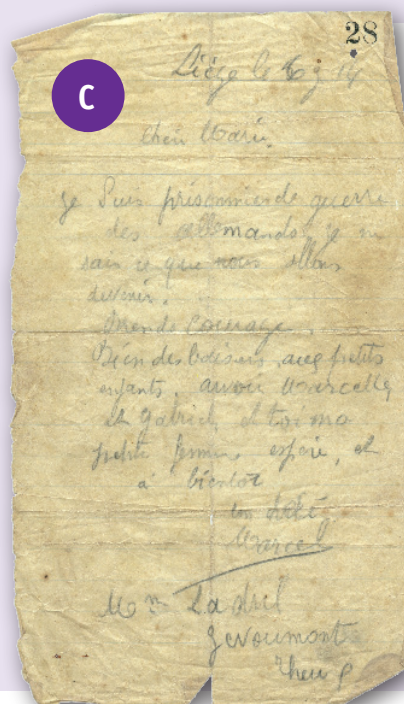 28
C
Liège le 6 9 14
Cher Marie,
Je Suis prisonnier de guerre
des allemands je ne
sais ce que nous allons
devenir.
Prends courage.
Bien des baisers aux petits
enfants, auvoir Marcelle
et Gabriel, et toi ma
petite femme, espère, et
à bientôt
ton
Marcel
Mme Ladril
Gevoumont
Theux